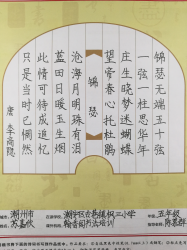 锦瑟无端五十弦
一弦一柱思华年
庄生晓梦迷蝴蝶
望帝春心托杜鹃
【锦瑟】
沧海月明珠有泪
蓝田日暖玉生烟
此情可待成追忆
只是当时已惘然
唐 李商隐
潮州市
潮安区古巷镇枫 小学
五年级
苏嘉欣
书法培训